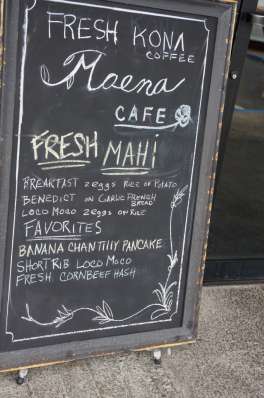 FRESH KONA
COFFEE
Maena
CAFE
FRESH MAHI
BREAKFAST 2 eggs RICE OR POTATO
BENEDICT ON GARLIC FRENCH
BREAD
LOCO MOCO 2 eggs OR RICE
FAVORITES
BANANA CHANTILLY PANCAKE
SHORT RIB LOCO MOCO
FRESH CORNBEEF HASH